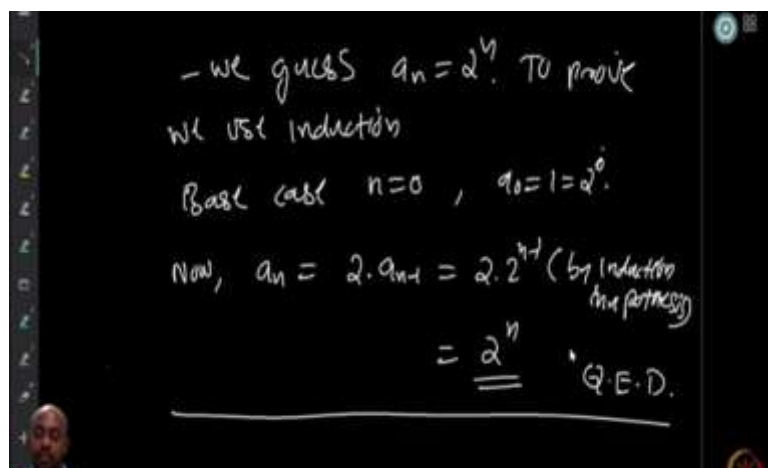 - we guess aₙ = 2ⁿ. To prove
we use induction
Base case n=0 , a₀ = 1 = 2⁰.
Now, aₙ = 2.aₙ₋₁ = 2.2ⁿ⁻¹ (by induction
hypothesis)
= 2ⁿ Q.E.D.